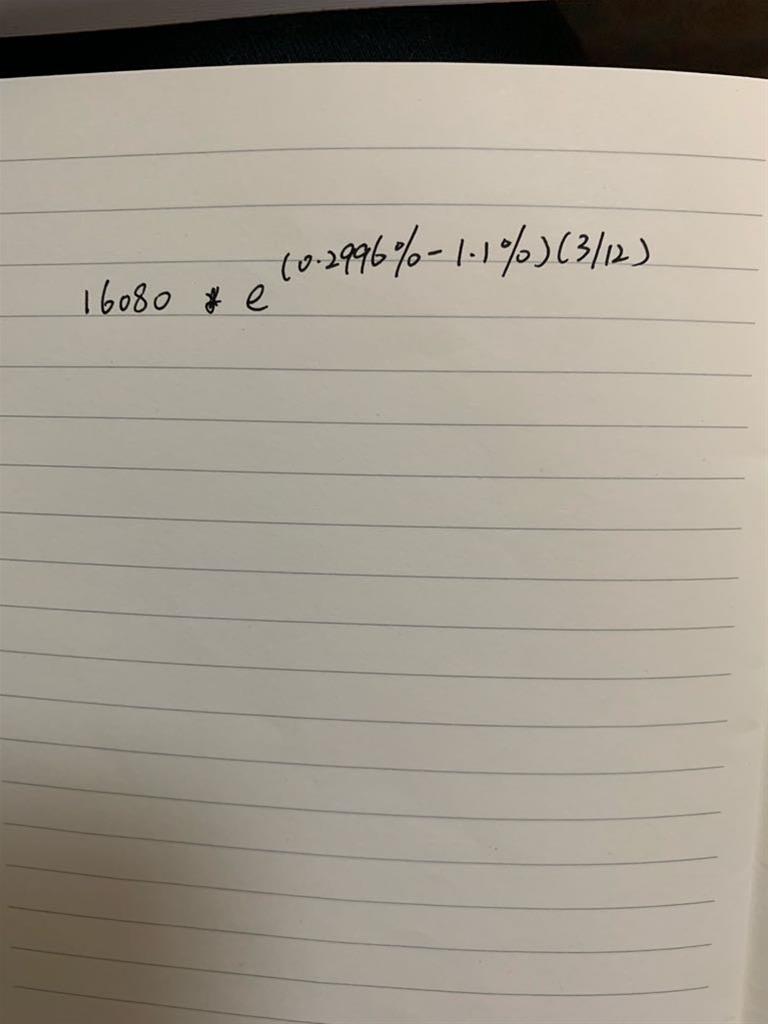 16080 * e^(0.2996%-1.1%)(3/12)